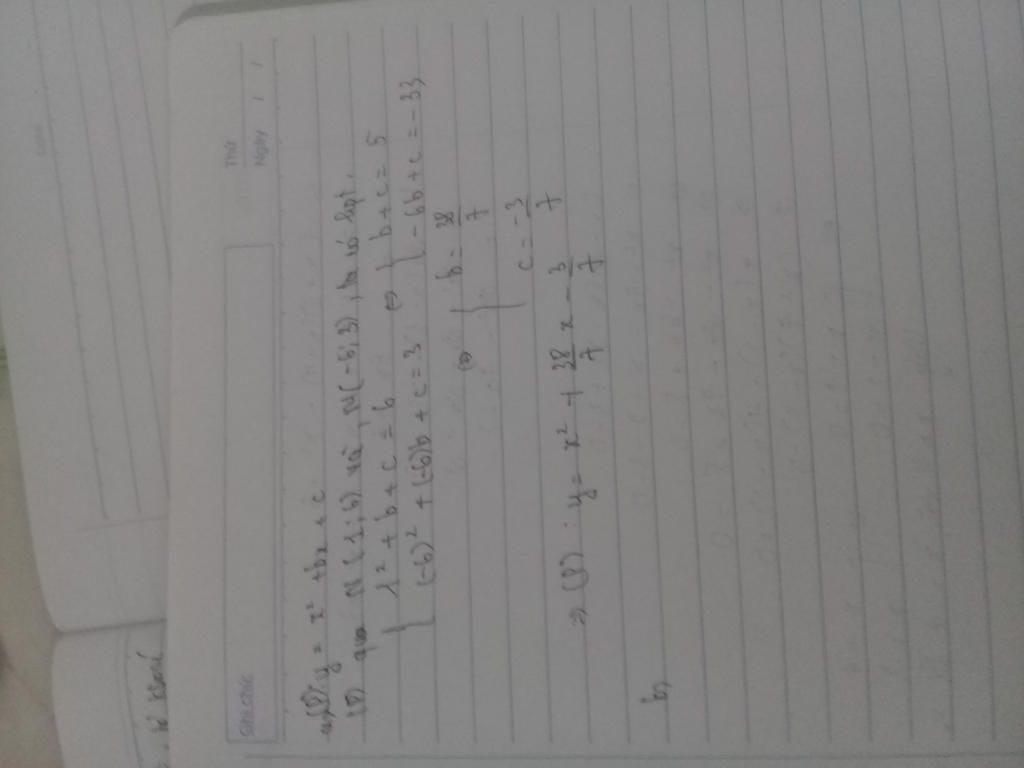 Ghi chú
Thứ
Ngày / /
a, (P): y = x² + bx + c
(P) qua M(1;6) và, N(-6;3), ta có hpt,
{ 1² + b + c = 6
(-6)² + (-6)b + c = 3
⇔ { b + c = 5
-6b + c = -33
⇔ { b = 38/7
c = -3/7
⇒ (P): y = x² + 38/7 x - 3/7
b,